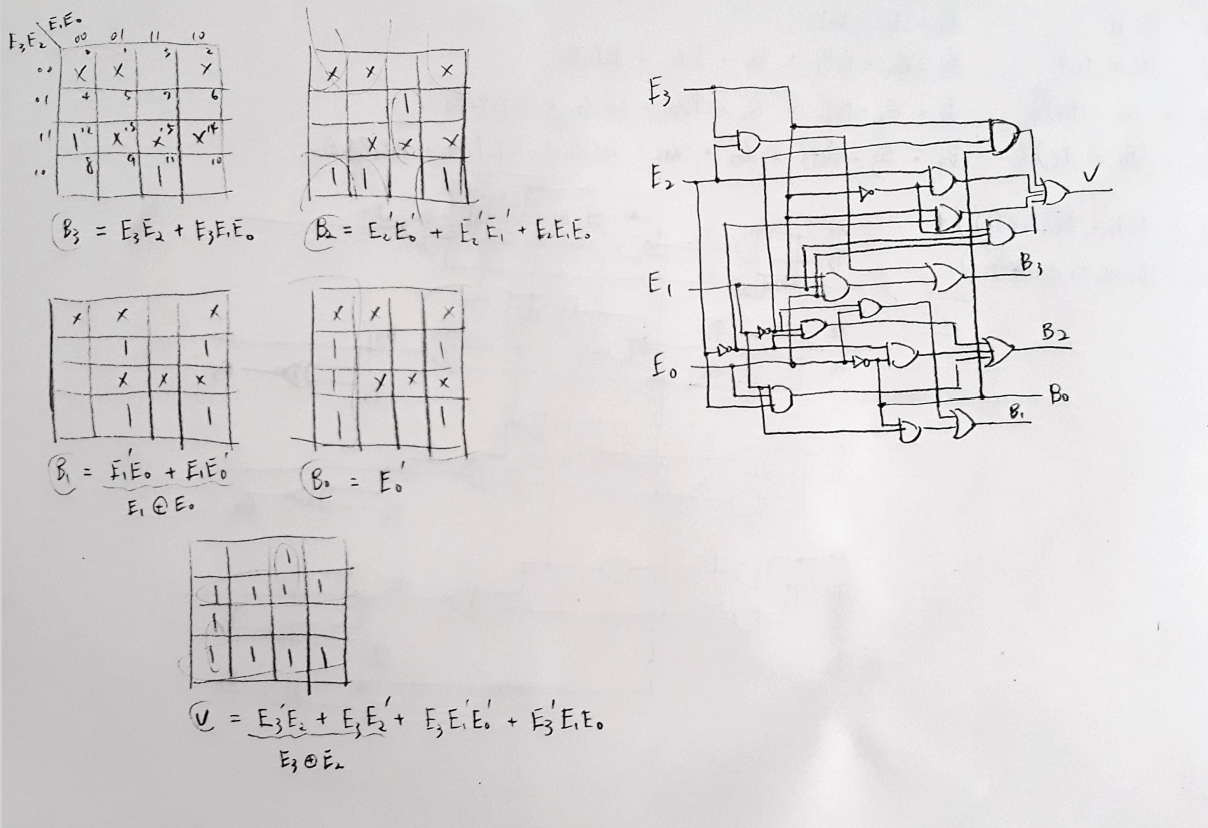 E₁E₀
E₃E₂ 00 01 11 10
0 1 3 2
00 X X X
4 5 7 6
01
11 1 12 X 13 X 15 X 14
8 9 11 10
10 1
B₃ = E₃E₂ + E₃E₁E₀
X X X
1
X X X
1 1 1
B₂ = E₂'E₀' + E₂'E₁' + E₂E₁E₀
X X X
1 1
X X X
1 1
B₁ = E₁'E₀ + E₁E₀'
E₁ ⊕ E₀
X X X
1 1
1 X X X
1 1
B₀ = E₀'
1
1 1 1 1
1
1 1 1 1
V = E₃'E₂ + E₃E₂' + E₃E₁'E₀' + E₃'E₁E₀
E₃ ⊕ E₂
E₃
E₂
V
B₃
E₁
B₂
E₀
B₀
B₁